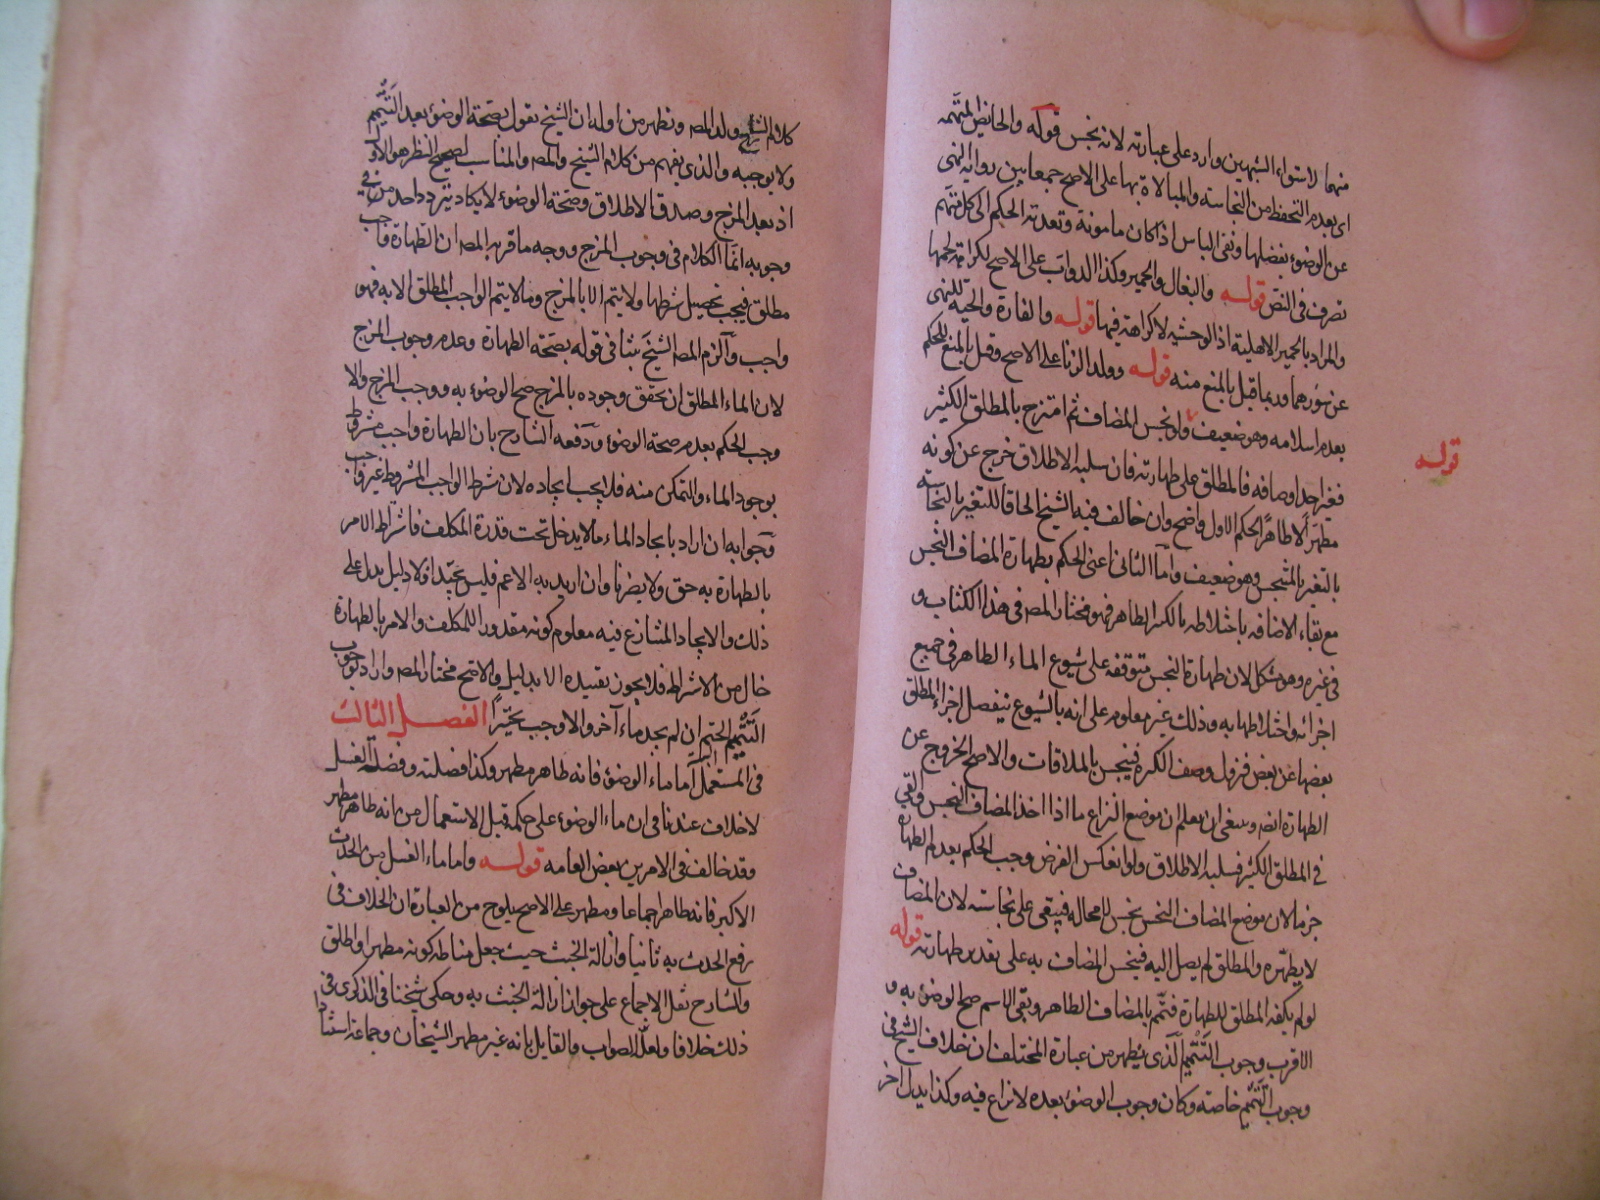 منهما لاستواء الشبهين وارد على عبارته لانه نجس قوله والحائض المتهمه
اى بعدم التحفظ من النجاسه والمبالاة بها على الاصح جمعا بين رواية النهى
عن الوضوء بفضلها ونفى الباس اذا كان مامونة وتعدته الحكم الى كل متهم
تصرف فى النص قوله والبغال والحمير وكذا الدواب على الاصح لكراهة لحمها
والمراد بالحمير الاهلية اذ الوحشيه لا كراهة فيها قوله والفارة والحية للنهى
عن سورهما وربما قيل بالمنع منه قوله وولد الزنا على الاصح وقيل بالمنع للحكم
بعدم اسلامه وهو ضعيف ولو نجس المضاف ثم امتزج بالمطلق الكثير
قوله
فغير احد اوصافه فالمطلق على طهارته فان سلبه الاطلاق خرج عن كونه
مطهرا لا طاهرا الحكم الاول واضح وان خالف فيه الشيخ الحاقا للتغير بالنجاسة
بالتغير بالمتنجس وهو ضعيف واما الثانى اعنى الحكم بطهارة المضاف النجس
مع بقاء الاضافه باختلاطه بالكر الطاهر فهو مختار المصـ فى هذا الكتاب و
فى غيره وهو مشكل لان طهارة النجس متوقفه على شيوع الماء الطاهر فى جميع
اجزائه واختلاطها به وذلك غير معلوم على انه بالشيوع ينفصل اجزاء المطلق
بعضها عن بعض فيزول وصف الكرة فينجس بالملاقات والاصح الخروج عن
الطهارة ايضا وينبغى ان يعلم ان موضع النزاع ما اذا اخذ المضاف النجس والقى
فى المطلق الكثير فسلبه الاطلاق ولو انعكس الفرض وجب الحكم بعدم الطهارة
جزما لان موضع المضاف النجس نجس لا محاله فيبقى على نجاسته لان المضاف
لا يطهره والمطلق لم يصل اليه فينجس المضاف به على تقدير طهارته قوله
لو لم يكفه المطلق للطهارة فتمم بالمضاف الطاهر وبقى الاسم صح الوضوء به و
الاقرب وجوب التتميم الذى يظهر من عبارة المختلف ان خلاف الشيخ فى
وجوب التتميم خاصته وكان وجوب الوضوء بعده لا نزاع فيه وكذا يدل اخر
كلام الشارح ولد المصـ ويظهر من اوله ان الشيخ يقول بصحة الوضوء بعد التتميم
ولا يوجبه والذى يفهم من كلام الشيخ والمصـ والمناسب لصحيح النظر هو الاول
اذ بعد المزج وصدق الاطلاق وصحة الوضوء لا يكاد يتردد احد من فى
وجوبه انما الكلام فى وجوب المزج ووجه ما قربه المصـ ان الطهارة واجب
مطلق فيجب تحصيل شرطها ولا يتم الا بالمزج وما لا يتم الواجب المطلق الا به فهو
واجب والزم المصـ الشيخ بثنا فى قوله بصحة الطهارة وعدم وجوب المزج
لان الماء المطلق ان تحقق وجوده بالمزج صح الوضوء به ووجب المزج والا
وجب الحكم بعدم صحة الوضوء ودفعه الشارح بان الطهارة واجب مشروط
بوجود الماء والتمكن منه فلا يجب ايجاده لان شرط الواجب المشروط غير واجب
وجوابه ان اراد بايجاد الماء ما لا يدخل تحت قدرة المكلف فاشتراط الامر
بالطهارة به حق ولا يضرنا وان اريد به الاعم فليس بجيد اذ لا دليل يدل على
ذلك والايجاد المتنازع فيه معلوم كونه مقدورا للمكلف والامر بالطهارة
خال من الاشتراط فلا يجوز تقييده الا بدليل والاصح مختار المصـ واراد بوجوب
التتميم الحتم ان لم يجد ماء آخر والا وجب تخيرا الفصل الثالث
فى المستعمل اما ماء الوضوء فانه طاهر مطهر وكذا فضلته وفضلة الغسل
لا خلاف عندنا فى ان ماء الوضوء على حكمه قبل الاستعمال من انه طاهر مطهر
وقد خالف فى الامرين بعض العامه قوله واما ماء الغسل من الحدث
الاكبر فانه طاهر اجماعا ومطهر على الاصح يلوح من العبارة ان الخلاف فى
رفع الحدث به ثانيا وازالة الخبث حيث جعل مناطه كونه مطهرا واطلق
والشارح نقل الاجماع على جواز ازالة الخبث به وحكى شيخنا فى الذكرى فى
ذلك خلافا ولعله الصواب والقايل بانه غير مطهر الشيخان وجماعة استنادا